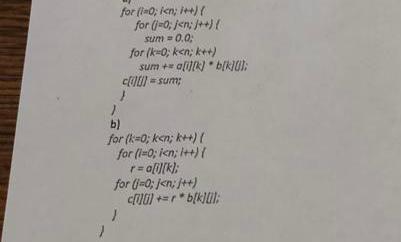 for (i=0; i<n; i++) {
for (j=0; j<n; j++) {
sum = 0.0;
for (k=0; k<n; k++)
sum += a[i][k] * b[k][j];
c[i][j] = sum;
}
}
b)
for (k=0; k<n; k++) {
for (i=0; i<n; i++) {
r = a[i][k];
for (j=0; j<n; j++)
c[i][j] += r * b[k][j];
}
}